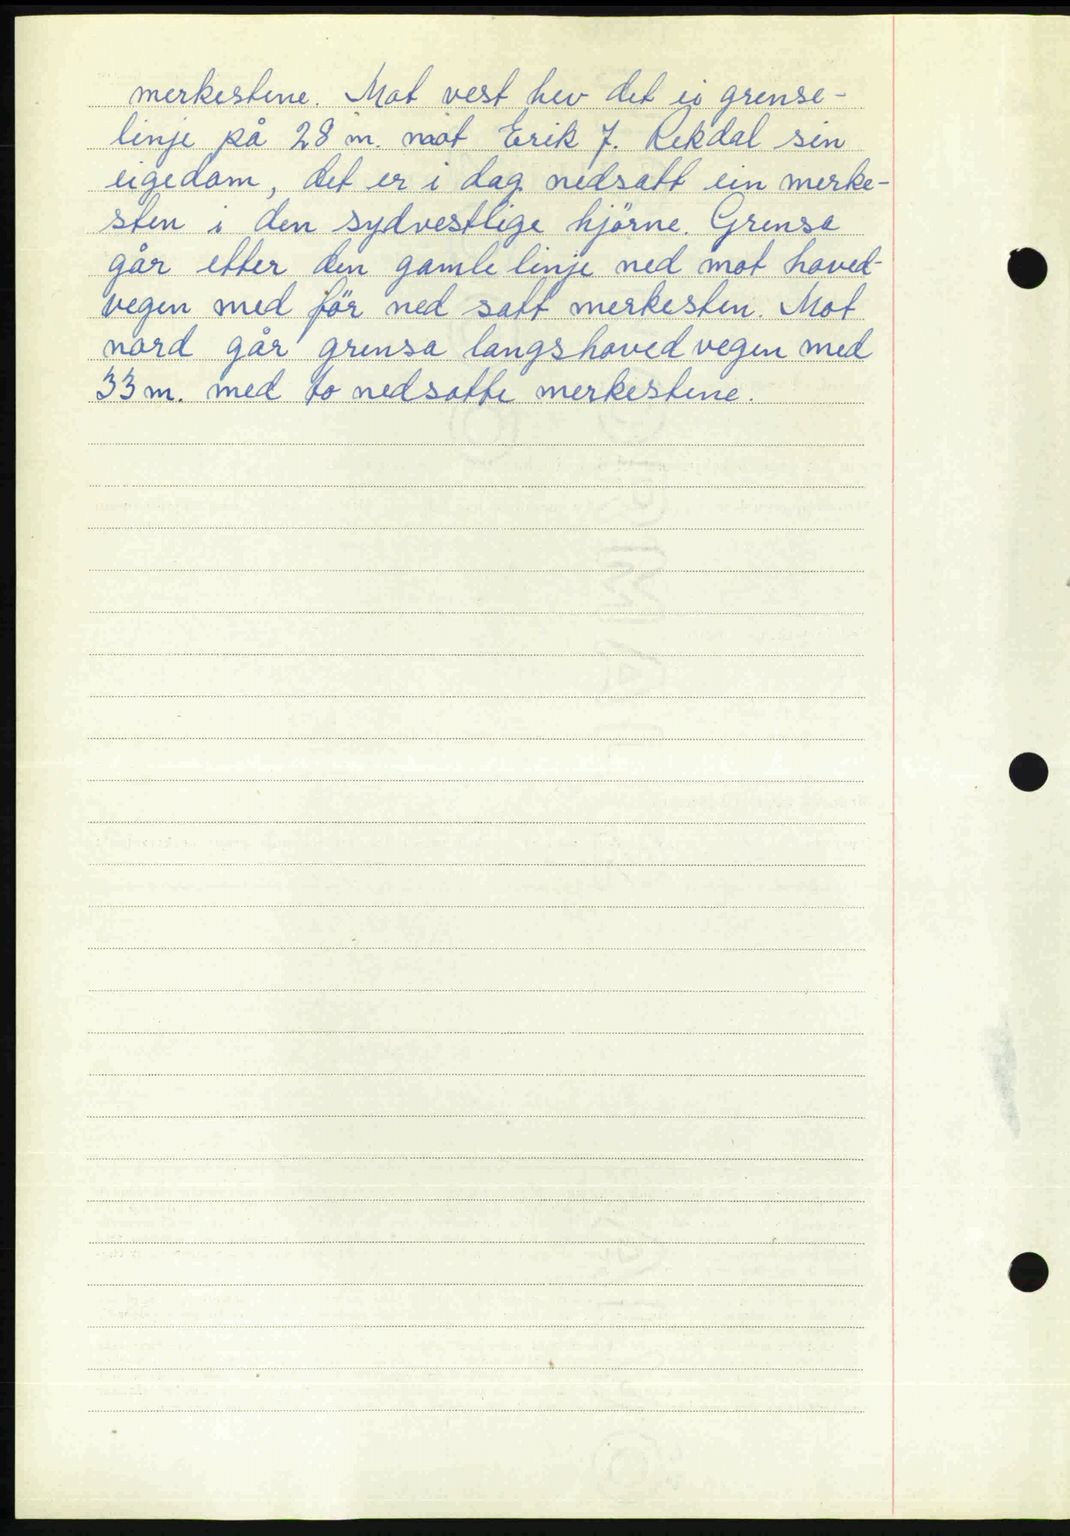 merkestene. Mot vest hev det ei grense-
linje på 28 m. mot Erik J. Rekdal sin
eigedom, det er i dag nedsatt ein merke-
sten i den sydvestlige hjörne. Grensa
går etter den gamle linje ned mot hoved-
vegen med för ned satt merkesten. Mot
nord går grensa langs hovedvegen med
33 m. med to nedsatte merkestene.